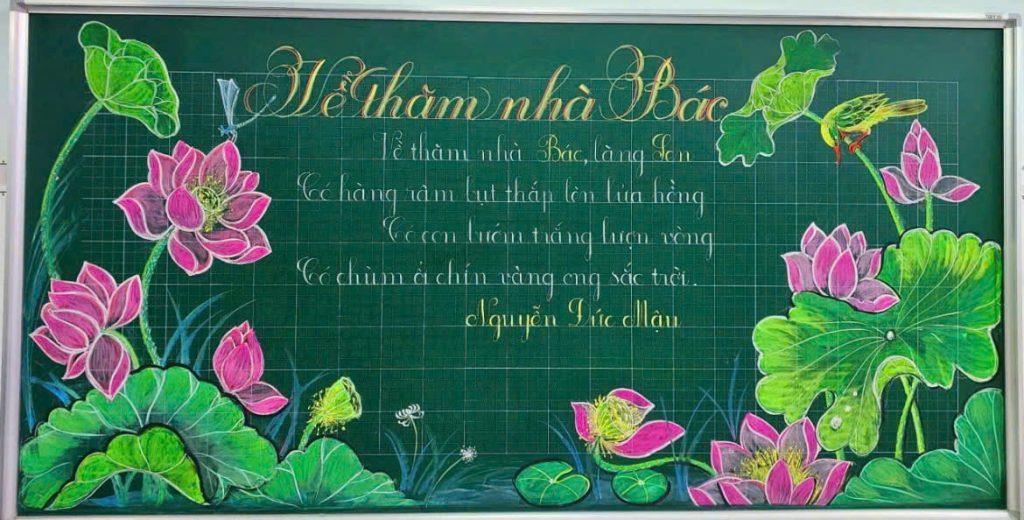 Về thăm nhà Bác
Về thăm nhà Bác, làng Sen
Có hàng râm bụt thắp lên lửa hồng
Có con bướm trắng lượn vòng
Có chùm ổi chín vàng ong sắc trời.
Nguyễn Đức Mậu